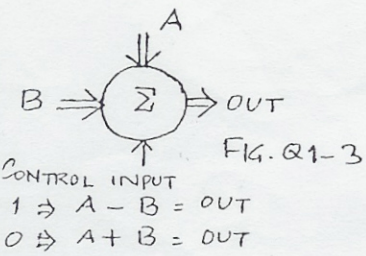 A
B ⇒ Σ ⇒ OUT
FIG. Q1-3
CONTROL INPUT
1 ⇒ A - B = OUT
0 ⇒ A + B = OUT